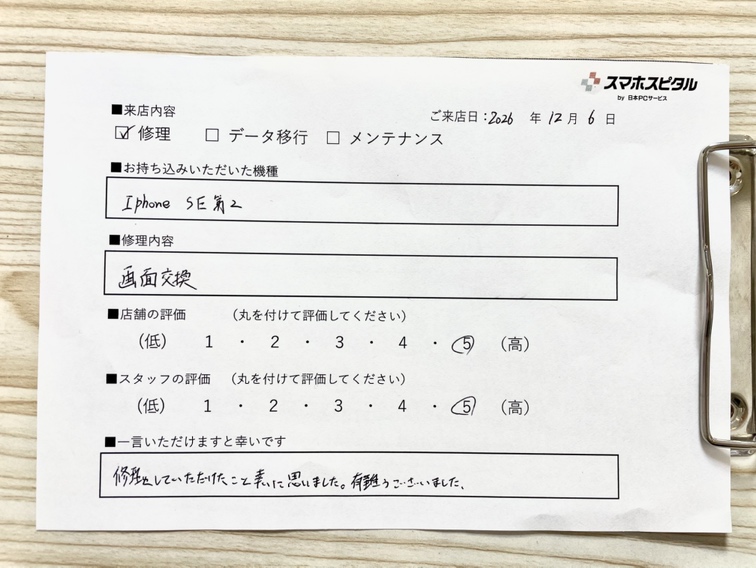 スマホスピタル
by 日本PCサービス
■来店内容
ご来店日：2026 年 12 月 6 日
☑ 修理 □ データ移行 □ メンテナンス
■お持ち込みいただいた機種
Iphone SE 第2
■修理内容
画面交換
■店舗の評価 （丸を付けて評価してください）
（低） 1 ・ 2 ・ 3 ・ 4 ・ 5 （高）
■スタッフの評価 （丸を付けて評価してください）
（低） 1 ・ 2 ・ 3 ・ 4 ・ 5 （高）
■一言いただけますと幸いです
修理していただけたこと幸いに思いました。有難うございました、